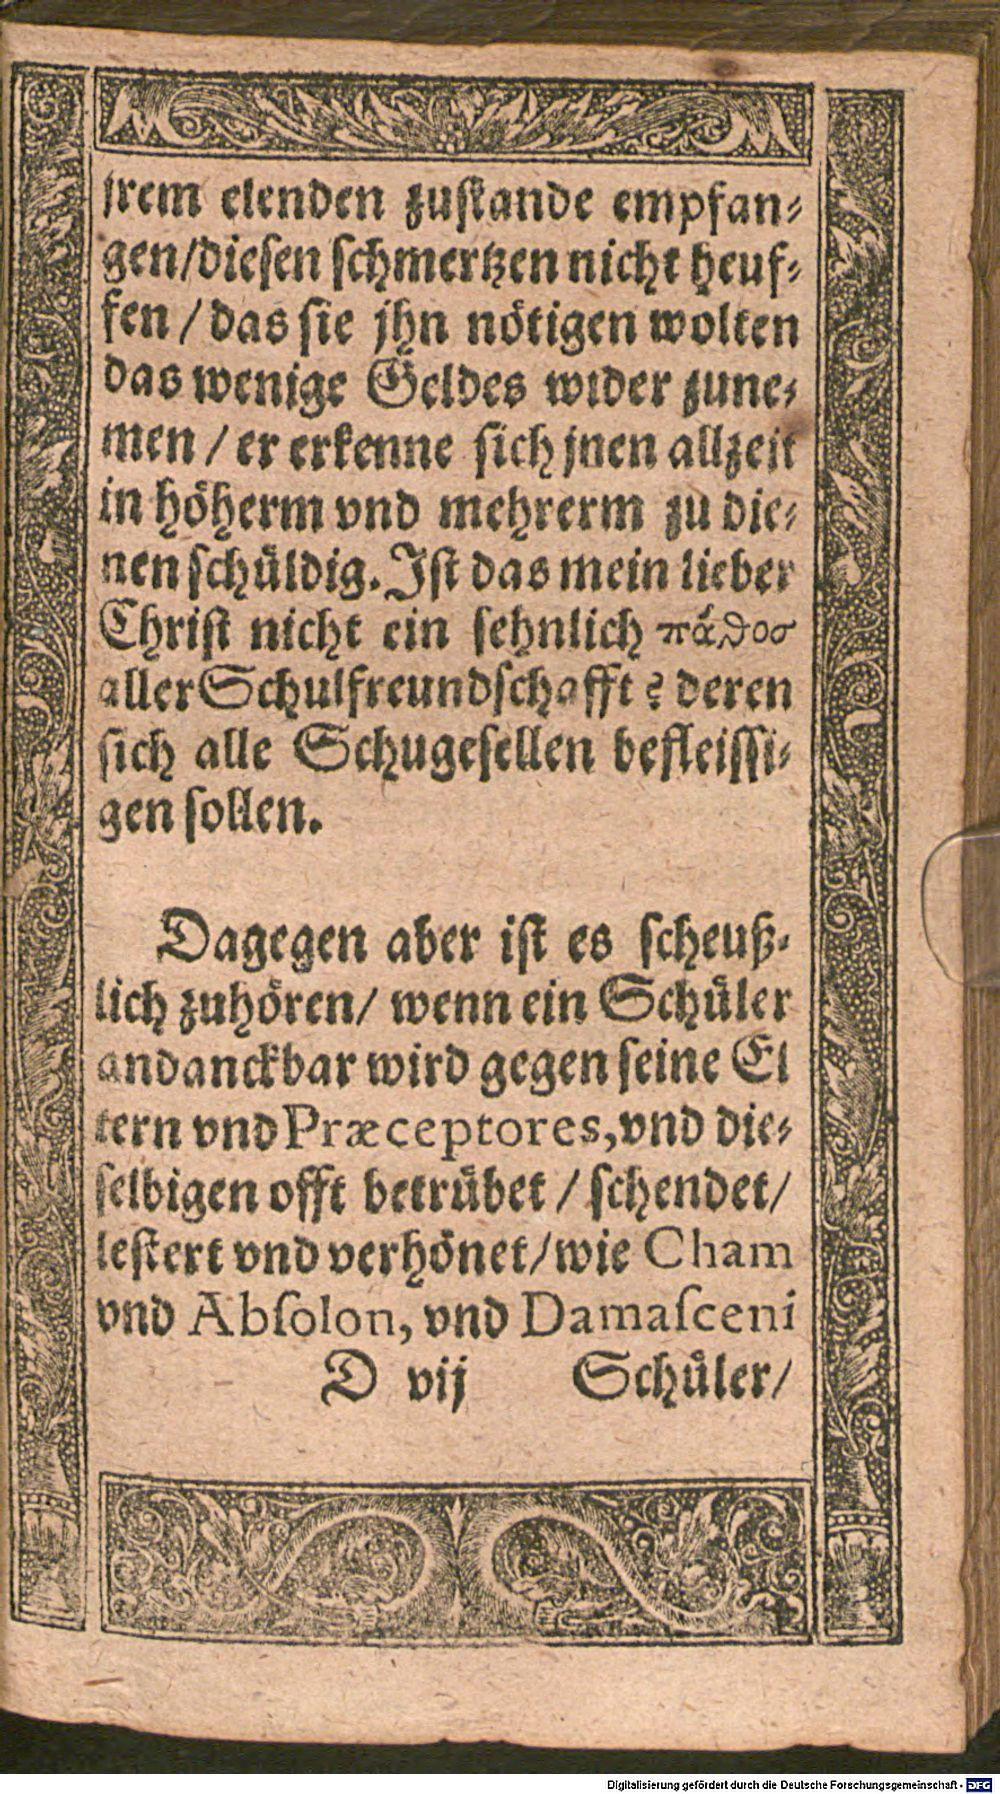 jrem elenden zustande empfan⸗
gen/diesen schmertzen nicht heuf⸗
fen / das sie jhn nötigen wolten
das wenige Geldes wider zune⸗
men / er erkenne sich jnen allzeit
in höherm vnd mehrerm zu die⸗
nen schüldig. Jst das mein lieber
Christ nicht ein sehnlich πάϑοσ
aller Schulfreundschafft? deren
sich alle Schugesellen befleissi⸗
gen sollen.
Dagegen aber ist es scheuß⸗
lich zuhören/ wenn ein Schüler
andanckbar wird gegen seine El
tern vnd Præceptores, vnd die⸗
selbigen offt betrübet / schendet/
lestert vnd verhönet/wie Cham
vnd Abſolon, vnd Damaſceni
D vij Schüler/
Digitalisierung gefördert durch die Deutsche Forschungsgemeinschaft - DFG